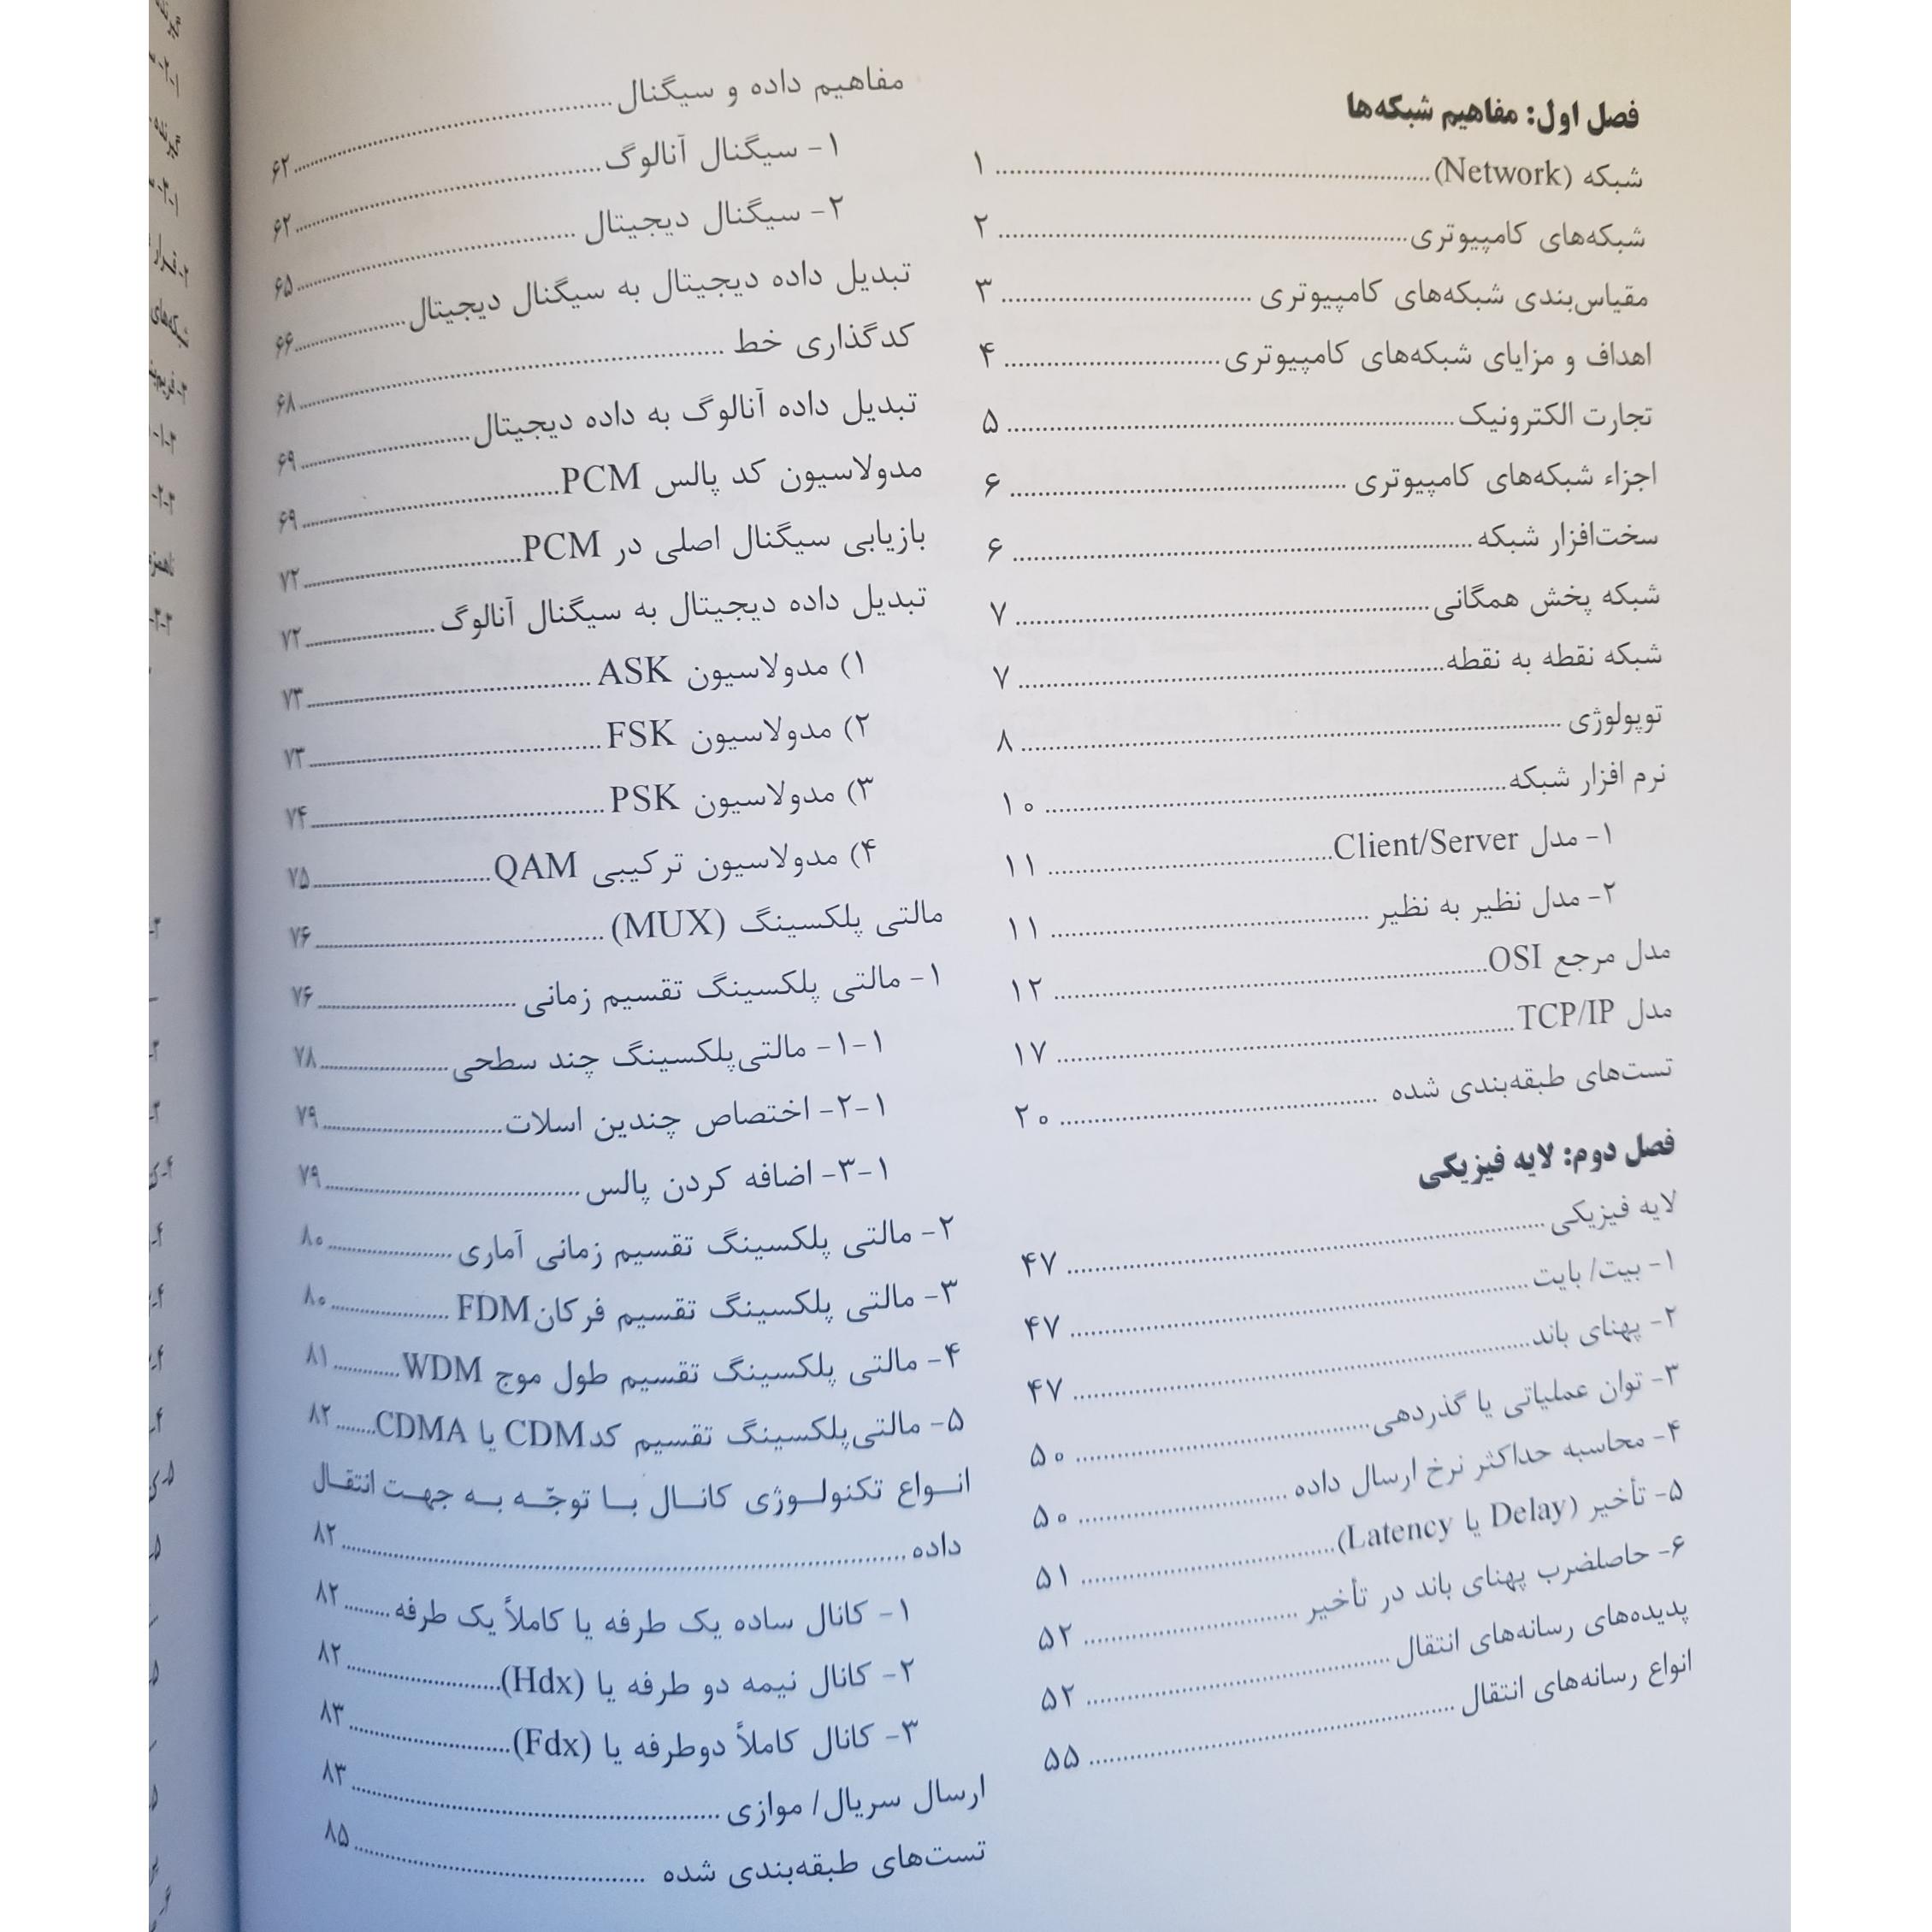 فصل اول: مفاهیم شبکه‌ها
شبکه (Network) ۱
شبکه‌های کامپیوتری ۲
مقیاس‌بندی شبکه‌های کامپیوتری ۳
اهداف و مزایای شبکه‌های کامپیوتری ۴
تجارت الکترونیک ۵
اجزاء شبکه‌های کامپیوتری ۶
سخت‌افزار شبکه ۶
شبکه پخش همگانی ۷
شبکه نقطه به نقطه ۷
توپولوژی ۸
نرم افزار شبکه ۱۰
۱- مدل Client/Server ۱۱
۲- مدل نظیر به نظیر ۱۱
مدل مرجع OSI ۱۲
مدل TCP/IP ۱۷
تست‌های طبقه‌بندی شده ۲۰
فصل دوم: لایه فیزیکی
لایه فیزیکی ۴۷
۱- بیت/ بایت ۴۷
۲- پهنای باند ۴۷
۳- توان عملیاتی یا گذردهی ۵۰
۴- محاسبه حداکثر نرخ ارسال داده ۵۰
۵- تأخیر (Delay یا Latency) ۵۱
۶- حاصلضرب پهنای باند در تأخیر ۵۲
پدیده‌های رسانه‌های انتقال ۵۲
انواع رسانه‌های انتقال ۵۵
مفاهیم داده و سیگنال ۶۲
۱- سیگنال آنالوگ ۶۲
۲- سیگنال دیجیتال ۶۵
تبدیل داده دیجیتال به سیگنال دیجیتال ۶۶
کدگذاری خط ۶۸
تبدیل داده آنالوگ به داده دیجیتال ۶۹
مدولاسیون کد پالس PCM ۶۹
بازیابی سیگنال اصلی در PCM ۷۲
تبدیل داده دیجیتال به سیگنال آنالوگ ۷۲
۱) مدولاسیون ASK ۷۳
۲) مدولاسیون FSK ۷۳
۳) مدولاسیون PSK ۷۴
۴) مدولاسیون ترکیبی QAM ۷۵
مالتی پلکسینگ (MUX) ۷۶
۱- مالتی پلکسینگ تقسیم زمانی ۷۶
۱-۱- مالتی‌پلکسینگ چند سطحی ۷۸
۱-۲- اختصاص چندین اسلات ۷۹
۱-۳- اضافه کردن پالس ۷۹
۲- مالتی پلکسینگ تقسیم زمانی آماری ۸۰
۳- مالتی پلکسینگ تقسیم فرکانFDM ۸۰
۴- مالتی پلکسینگ تقسیم طول موج WDM ۸۱
۵- مالتی‌پلکسینگ تقسیم کدCDM یا CDMA ۸۲
انواع تکنولوژی کانال با توجّه به جهت انتقال
داده ۸۲
۱- کانال ساده یک طرفه یا کاملاً یک طرفه ۸۲
۲- کانال نیمه دو طرفه یا (Hdx) ۸۲
۳- کانال کاملاً دوطرفه یا (Fdx) ۸۳
ارسال سریال/ موازی ۸۳
تست‌های طبقه‌بندی شده ۸۵